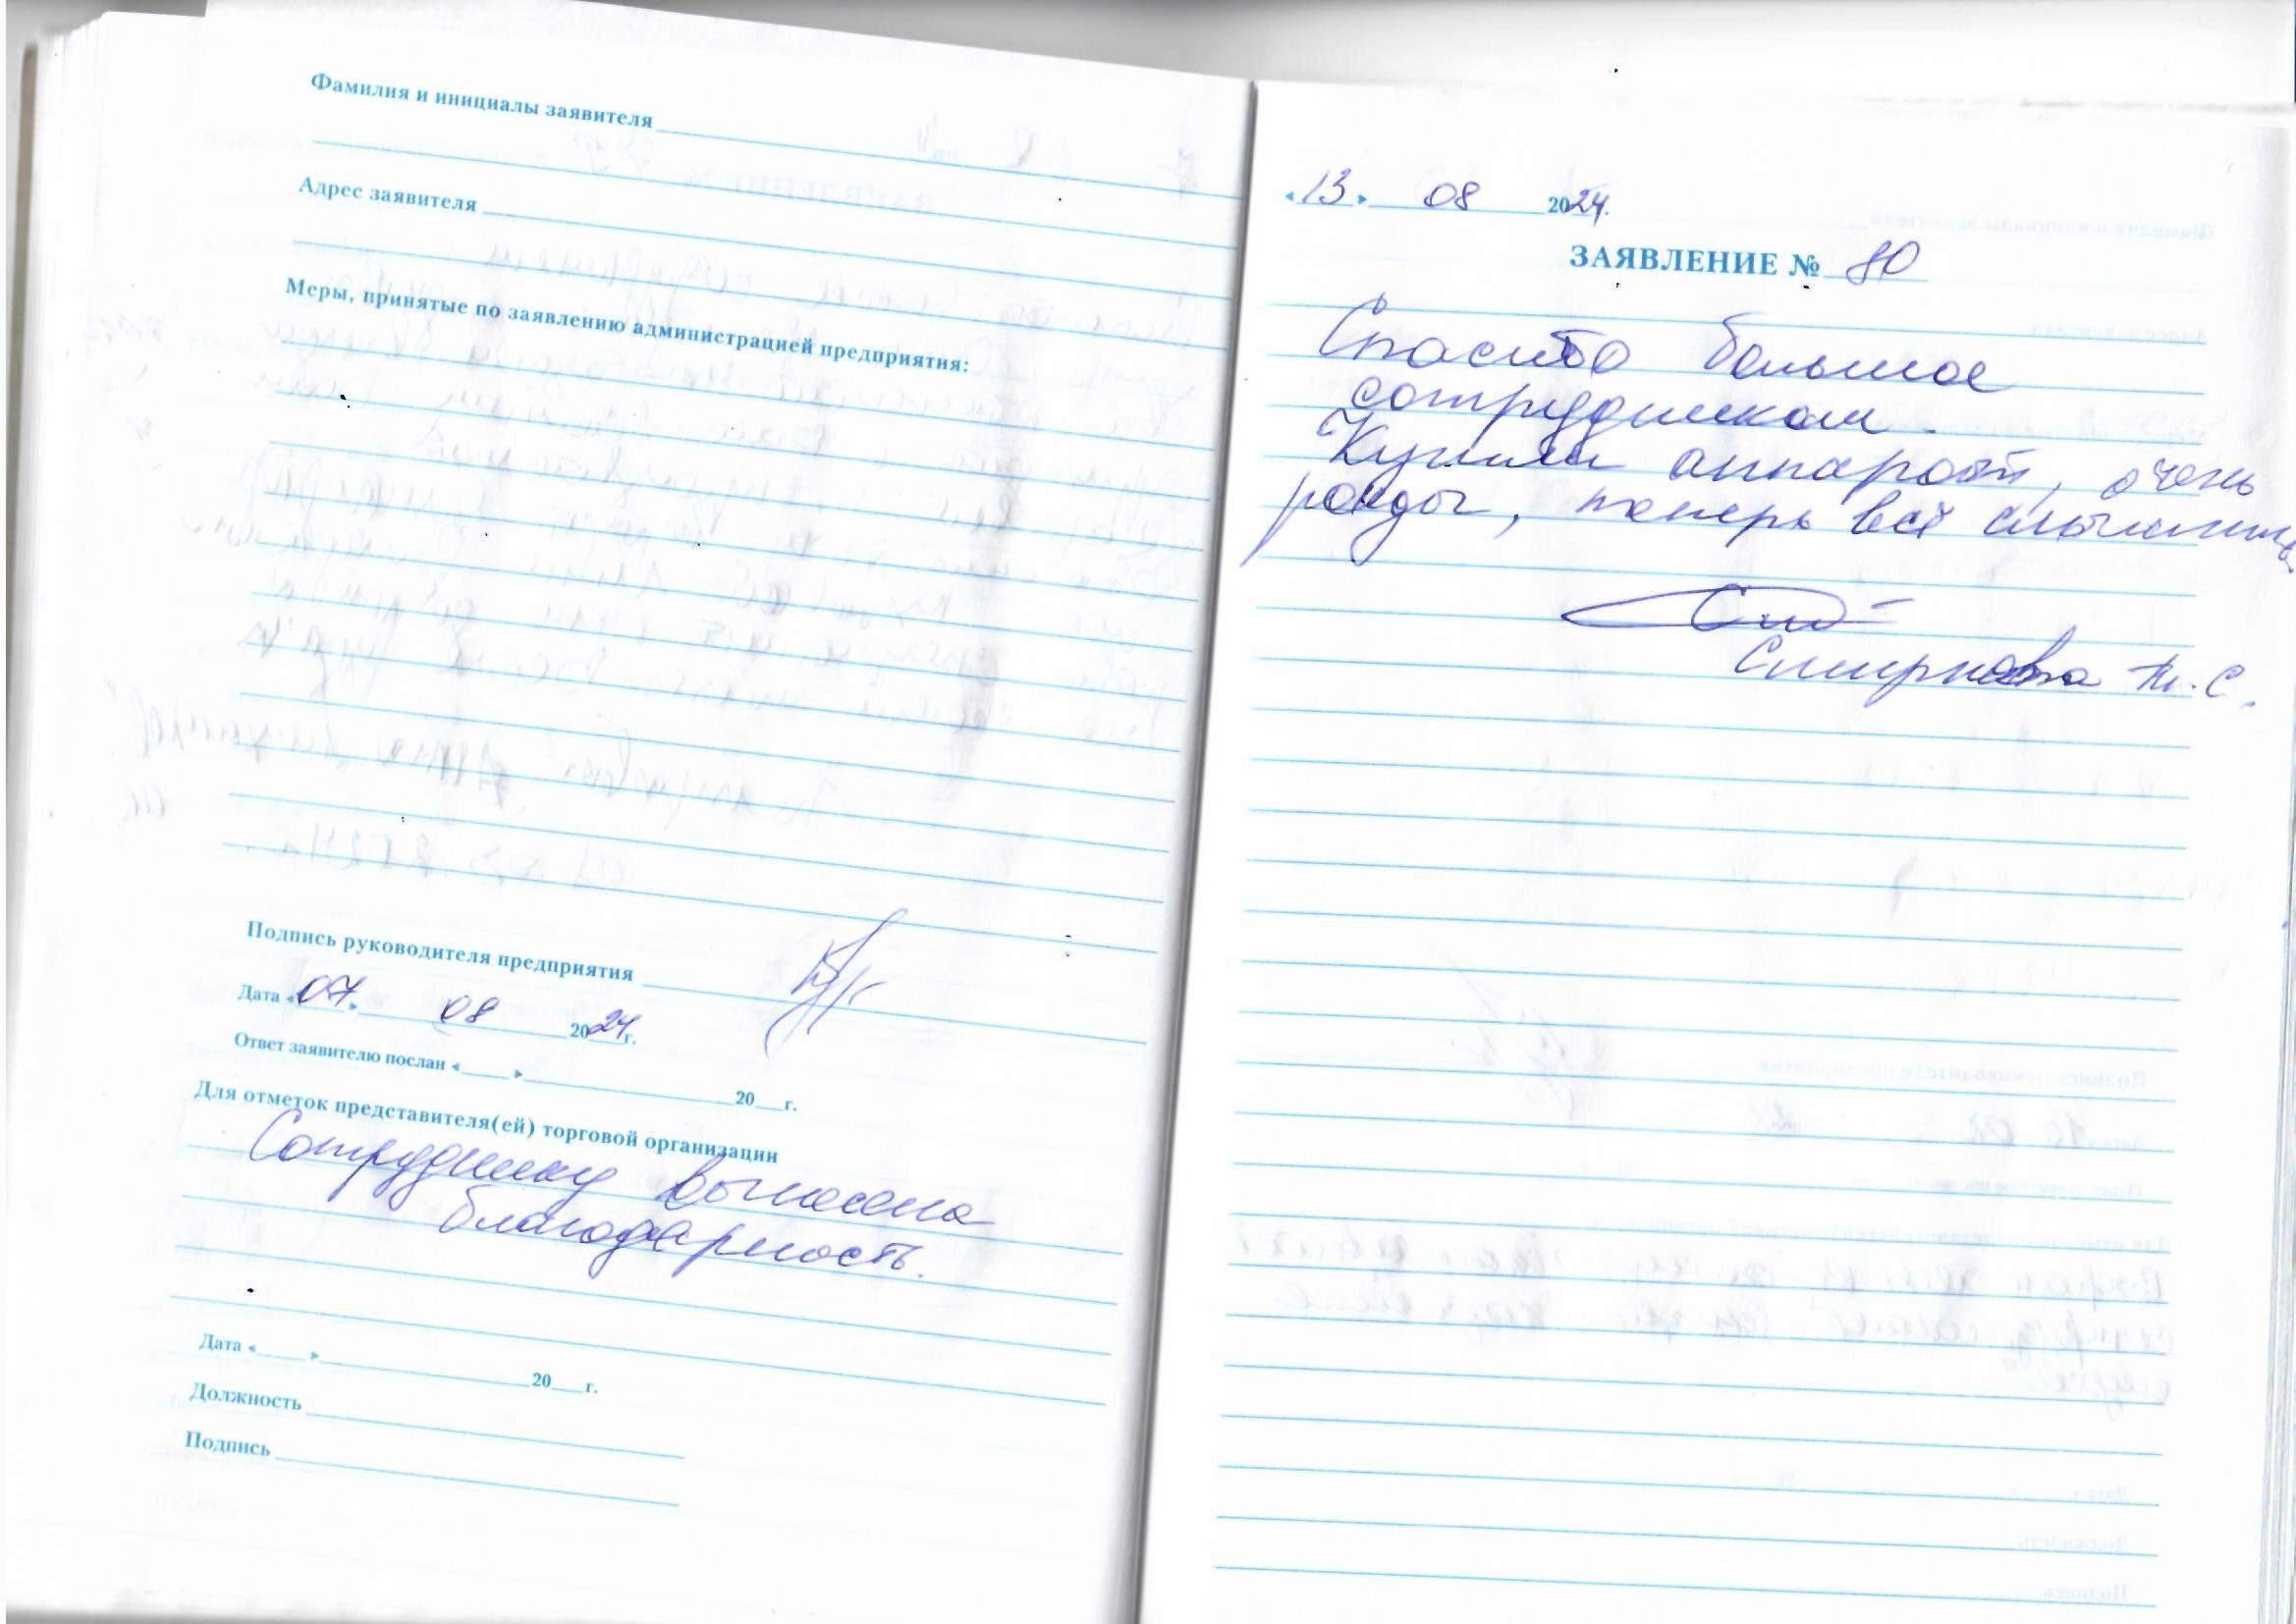 Фамилия и инициалы заявителя
Адрес заявителя
Меры, принятые по заявлению администрацией предприятия:
Подпись руководителя предприятия
Дата «07» 08 2024 г.
Ответ заявителю послан « » 20 г.
Для отметок представителя(ей) торговой организации
Сотруднику вынесена
благодарность.
Дата « » 20 г.
Должность
Подпись
«13» 08 2024 г.
ЗАЯВЛЕНИЕ № 80
Спасибо большое
сотрудникам.
Купили аппарат, очень
рады, теперь всё слышит.
Смирнова Т.С.